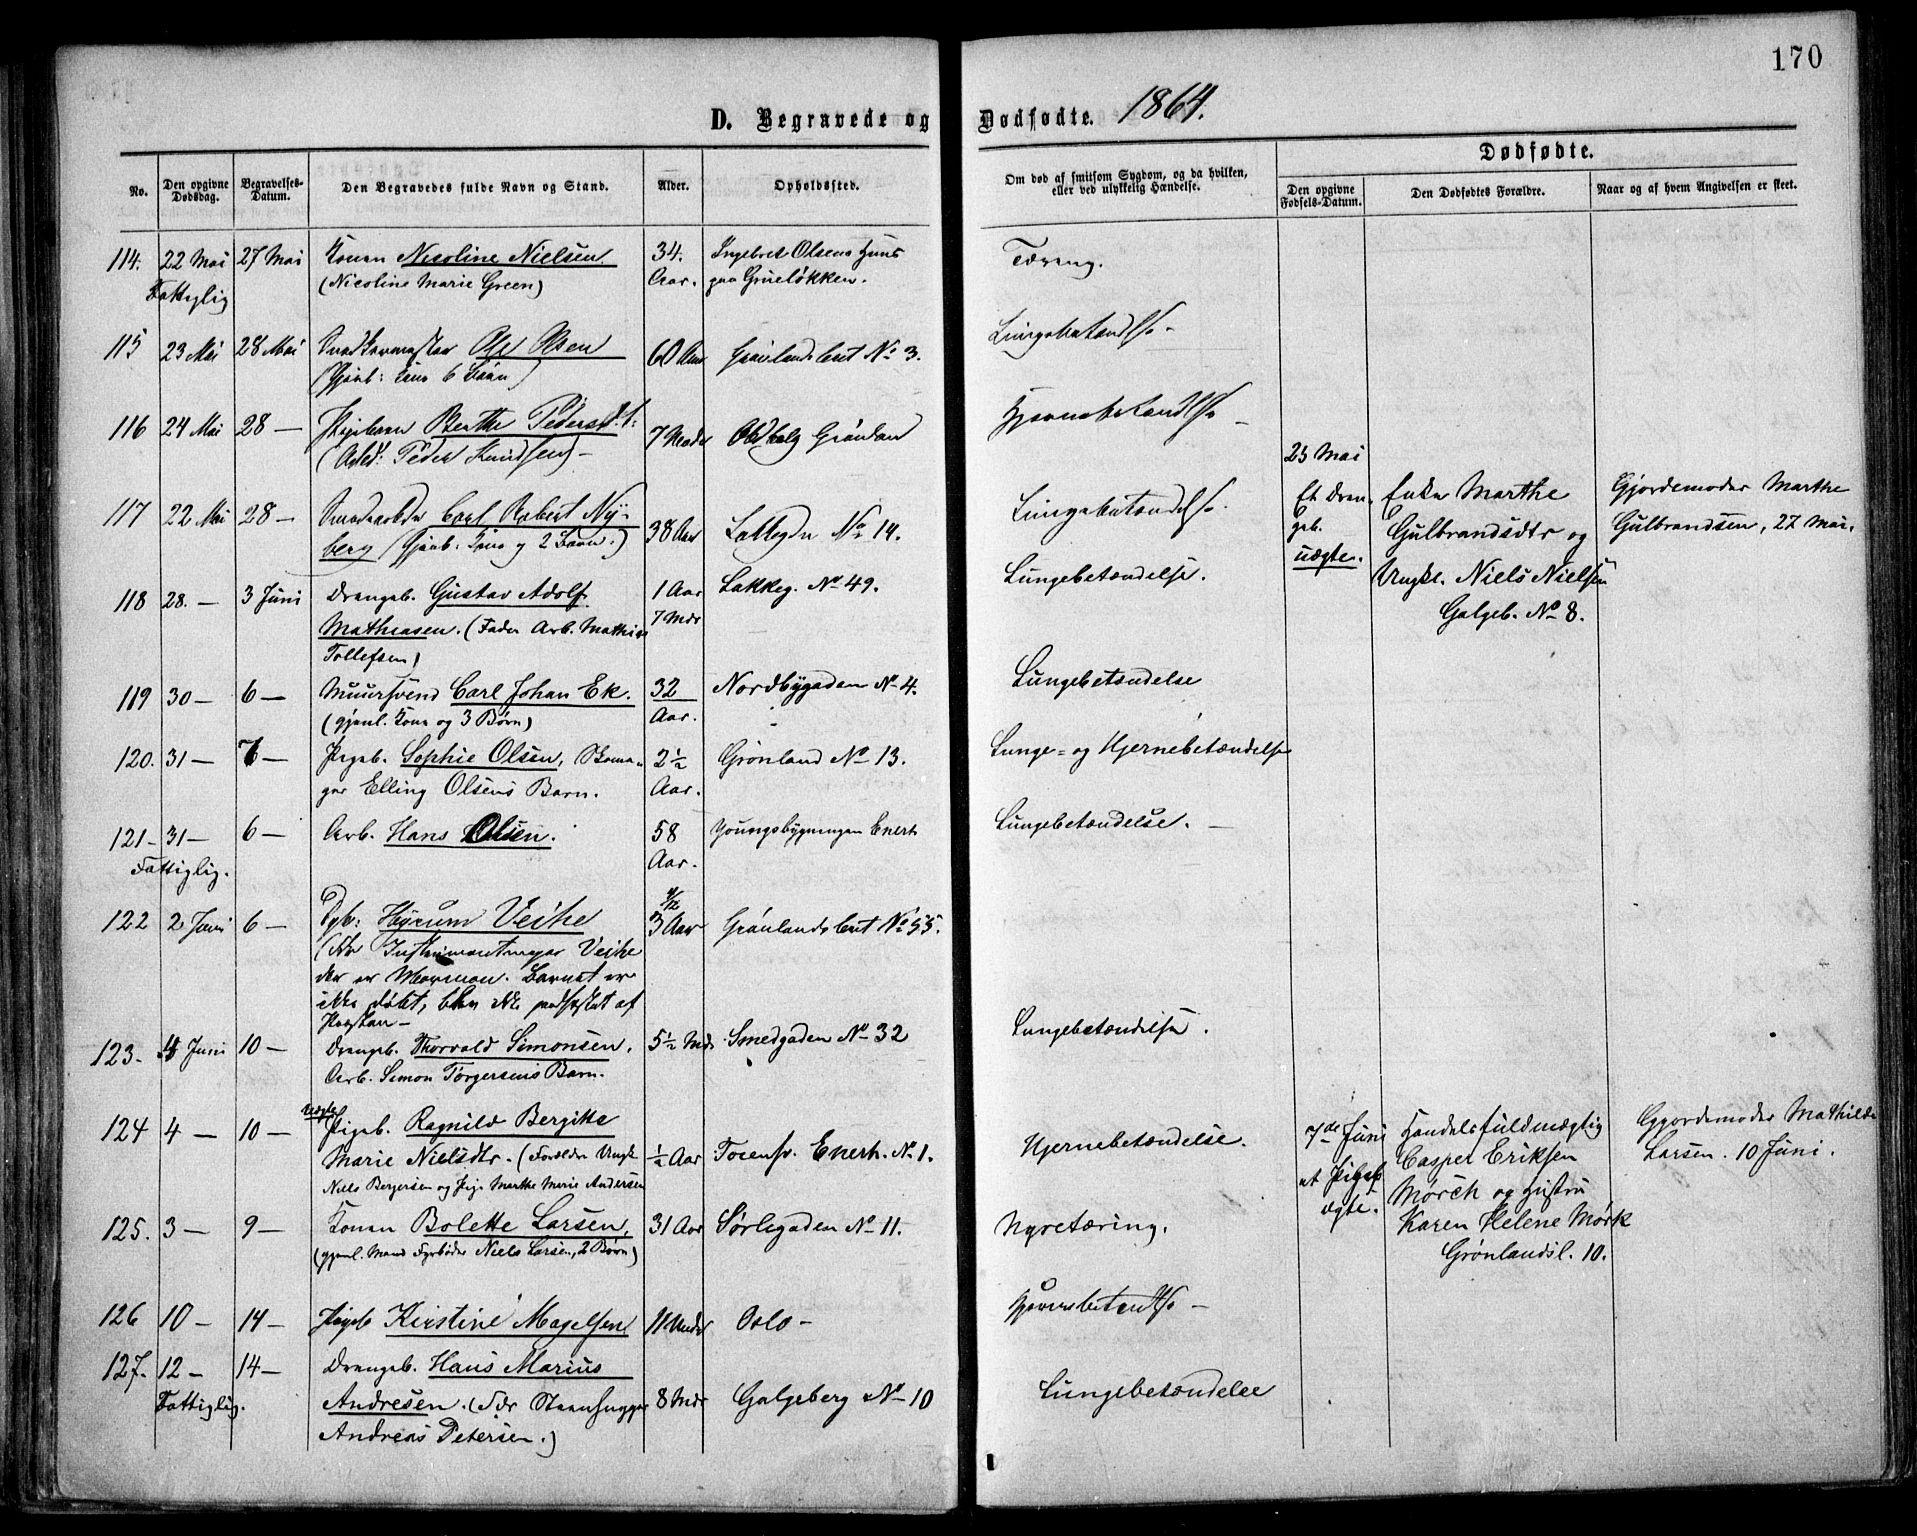 170
D. Begravede og Dødfødte. 1864.
No.
Den opgivne Dødsdag.
Begravelses-Datum.
Den Begravedes fulde Navn og Stand.
Alder.
Opholdssted.
Om død af smitsom Sygdom, og da hvilken, eller ved ulykkelig Hændelse.
Dødfødte.
Den opgivne Fødsels-Datum.
Den Dødfødtes Forældre.
Naar og af hvem Angivelsen er skeet.
114. 22 Mai 27 Mai Konen Nicoline Nielsen. 34. Ingebret Olsens Huus Tæring.
Fattiglig (Nicoline Marie Green) Aar. paa Grueløkken.
115 23 Mai 28 Mai Ole Olsen 60 Aar Grønlandsleret No 3. Lungebetændelse -
(Gjenl: Kone 6 Børn)
116 24 Mai 28 — Pigebarn Berthe Pedersd.t: 7 Mdr Grønland Hjernebetændelse -
(Peder Knudsen) -
117 22 Mai 28 — Carl Robert Ny- 38 Aar No 14. Lungebetændelse.
berg (Gjenl. Kone og 2 Børn.)
23 Mai
Et Dren- Enke Marthe Gjordemoder Marthe
geb. Gulbrandsdtr og Gulbrandsen, 27 Mai.
uægte. Ungk. Niels Nielsen
Galgeb. No 8.
118 28. — 3 Juni Drengeb. Gustav Adolf 1 Aar Lakkeg. No 49. Lungebetændelse.
Mathiasen. (Fader Arb. Mathias 7 Mdr
Tollefsen)
119 30 — 6 — Muursvend Carl Johan Ek. 32 Nordbygaden No 4. Lungebetændelse
(gjenl. Kone og 3 Børn) Aar.
120. 31 — 7 — Pigeb. Sophie Olsen, Skoma- 2½ Grønland No 13. Lunge- og Hjernebetændelse
ger Elling Olsens Barn. Aar.
121 - 31 — 6 — Arb. Hans Olsen. 58 Youngsbygningen Enerh. Lungebetændelse. —
Fattiglig. Aar.
122 2 Juni 6 — Hyrum Veihe 3 Aar Grønlandsleret No 55.
(Instrumentmager Veihe
der er Mormon. Barnet er
ikke døbt, blev ikke af
Præsten —
123. 4 Juni 10 — Drengeb. Thorvald Simonsen, 5½ Mdr. Smedgaden No 32 Lungebetændelse.
Arb. Simon Torgersens Barn.
124 4 — 10 — uægte Pigeb. Ragnild Bergitte
Marie Nielsdtr. (Forældre Ungk. ½ Aar Enerh. No 1. Hjernebetændelse.
Niels Bergersen og Pige Marthe Marie Andersen
7de Juni Handelsfuldmægtig Gjordemoder Mathilde
et Pigeb. Casper Eriksen Larsen. 10 Juni.
ægte. Mörch og Hustru
Karen Helene Mørk
Grønlandsl. 10.
125. 3 — 9 — Konen Bolette Larsen, 31 Aar Sørlegaden No 11. Nyretæring.
(gjenl. Mand Fyrbøder Niels Larsen, 2 Børn)
126 10 — 14 — Pigeb Kirstine Magelsen 11 Mdr Oslo - Hjernebetændelse -
127. 12 — 14 — Drengeb. Hans Marius
Fattiglig. Andresen. (Fdr Steenhugger 8 Mdr Galgeberg No 10 Lungebetændelse
Andreas Petersen.)